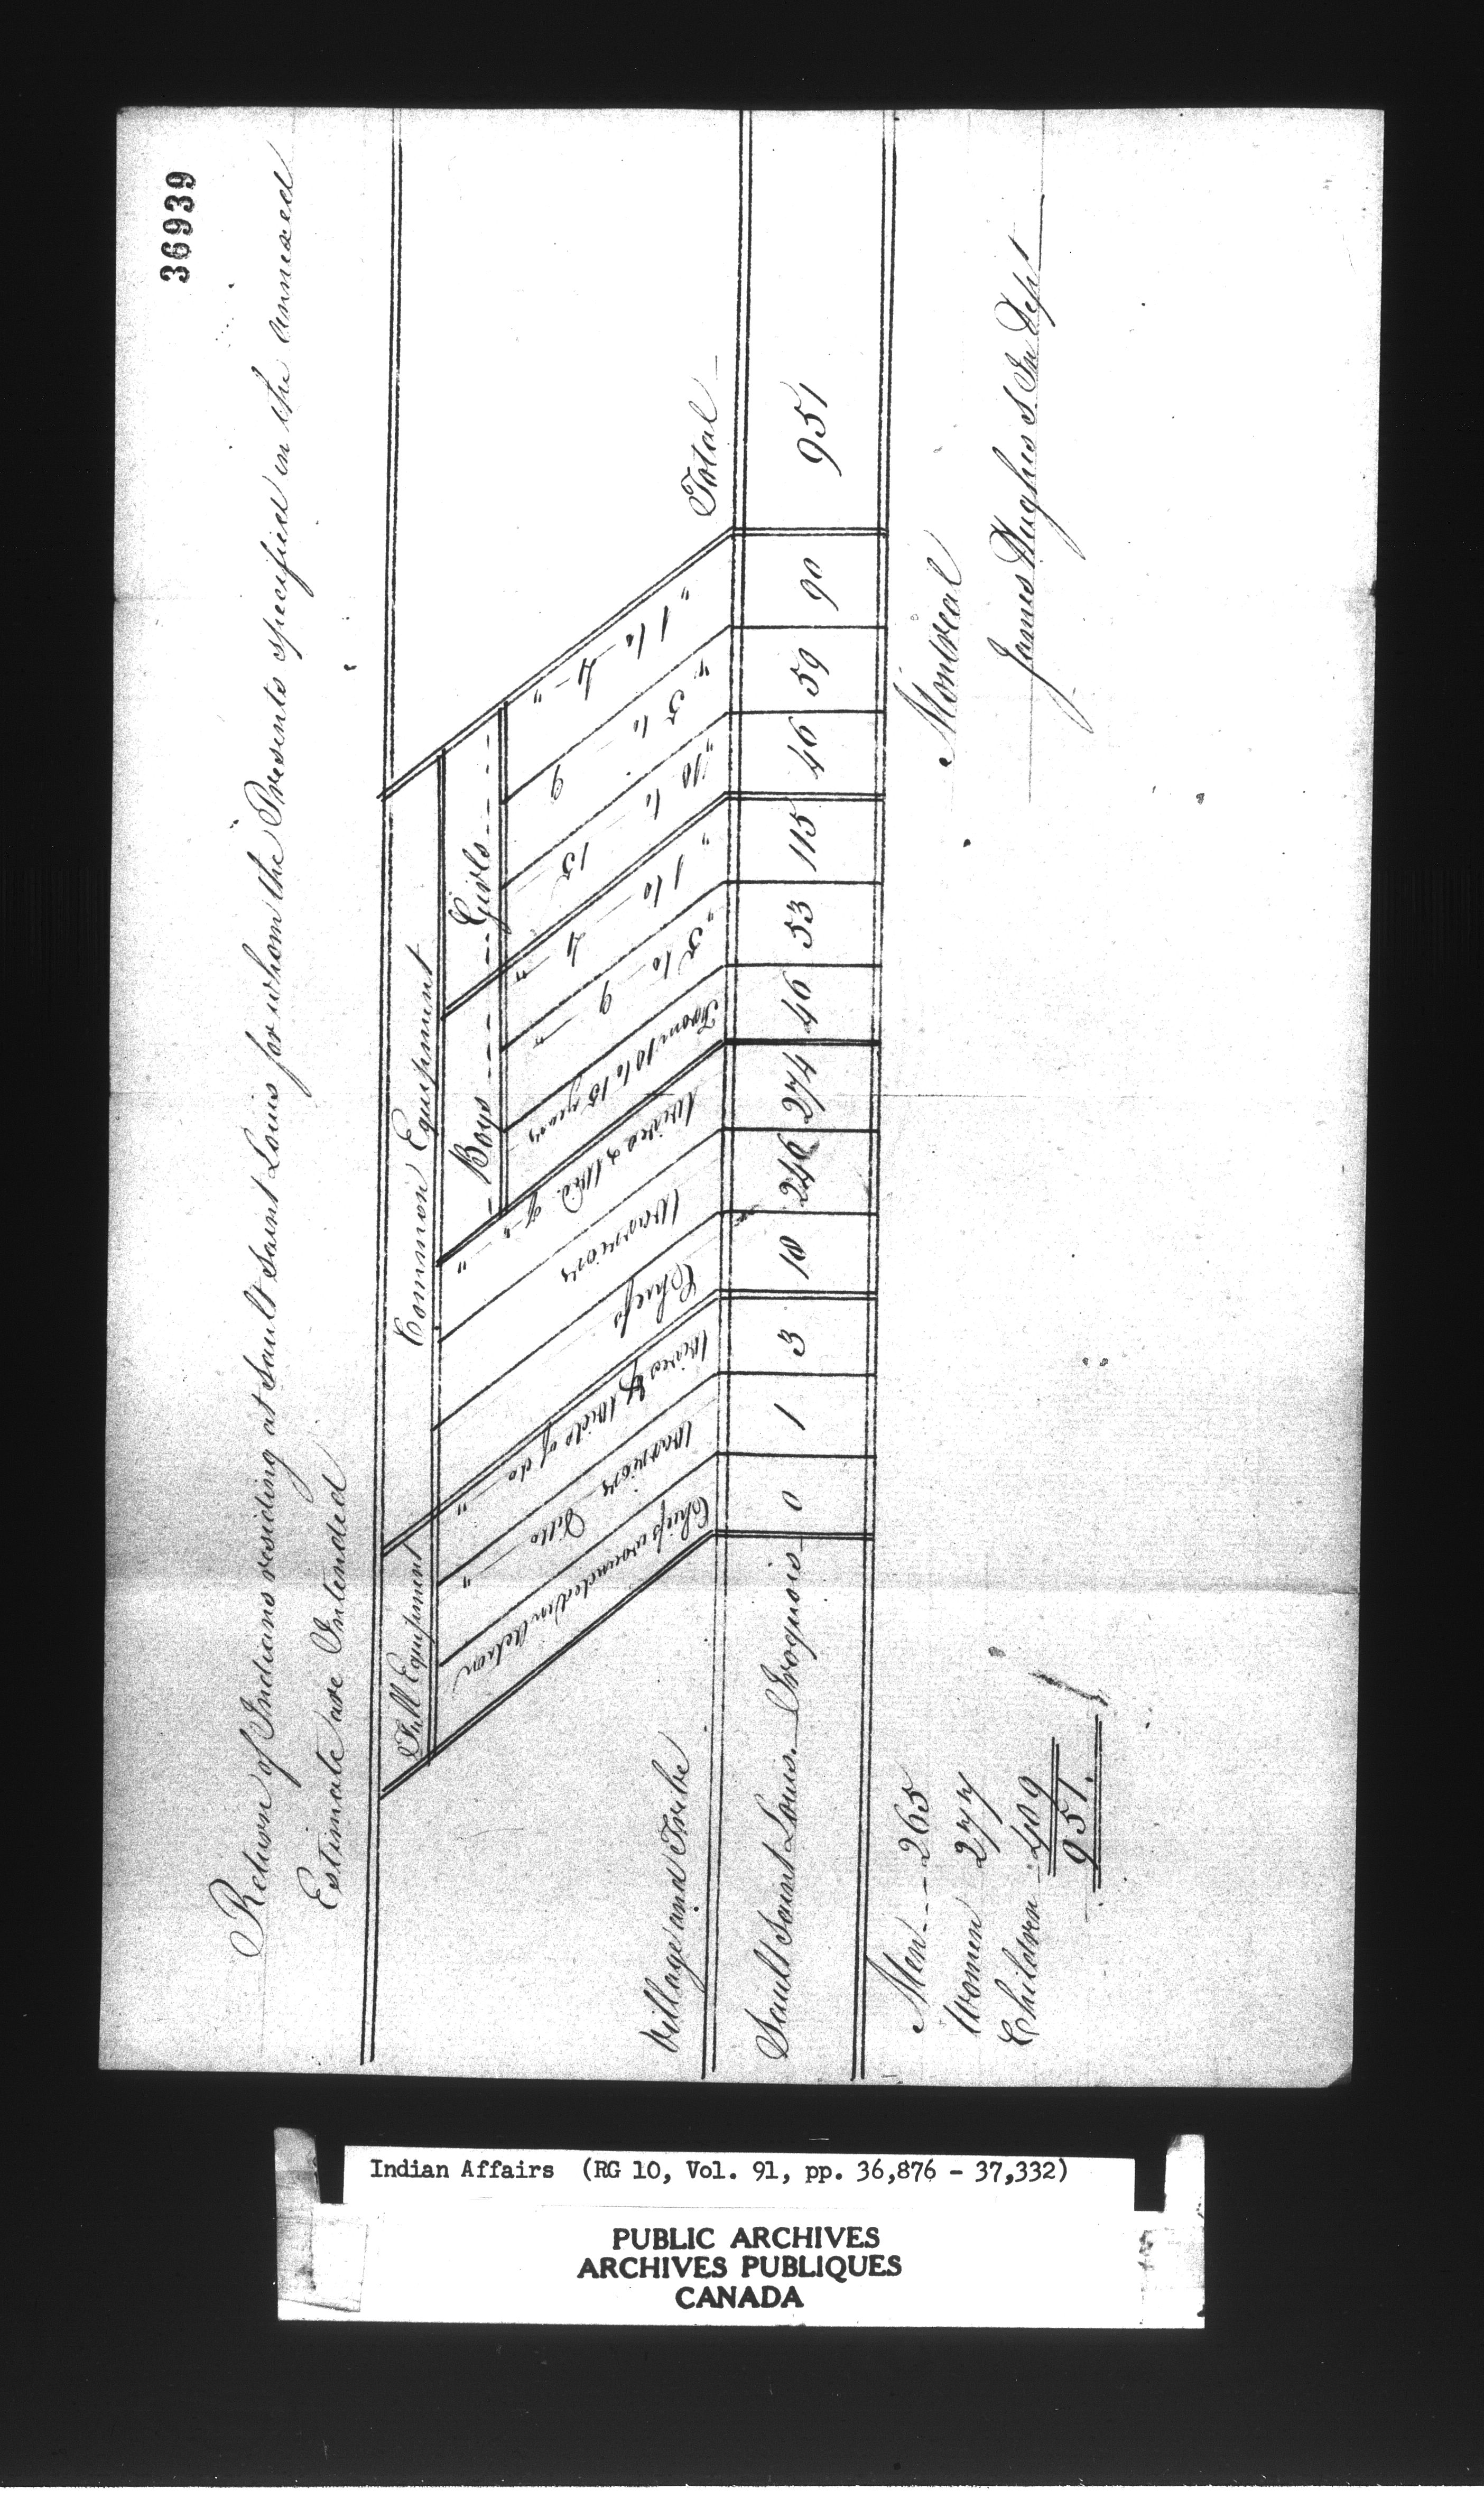 36939
Return of Indians residing at Sault Saint Louis for whom the Presents specified in the annexed
Estimate are Intended
Full Equipment
Common Equipment
Boys
Girls
Village and Tribe
Chiefs wounded in Action
" Warriors Ditto
" Wives & Wids of do
Chiefs
Warriors
" Wives & Wid. of "
From 10 to 15 years
" 5 to 9 "
" 1 to 4 "
" 10 to 15
" 5 to 9
" 1 to 4 "
Total
Sault Saint Louis. Iroquois 0 1 3 18 246 274 46 53 115 46 59 90 951
Men 265
Women 277
Children 409
951.
Montreal
James Hughes S. In Dept
Indian Affairs (RG 10, Vol. 91, pp. 36,876 - 37,332)
PUBLIC ARCHIVES
ARCHIVES PUBLIQUES
CANADA